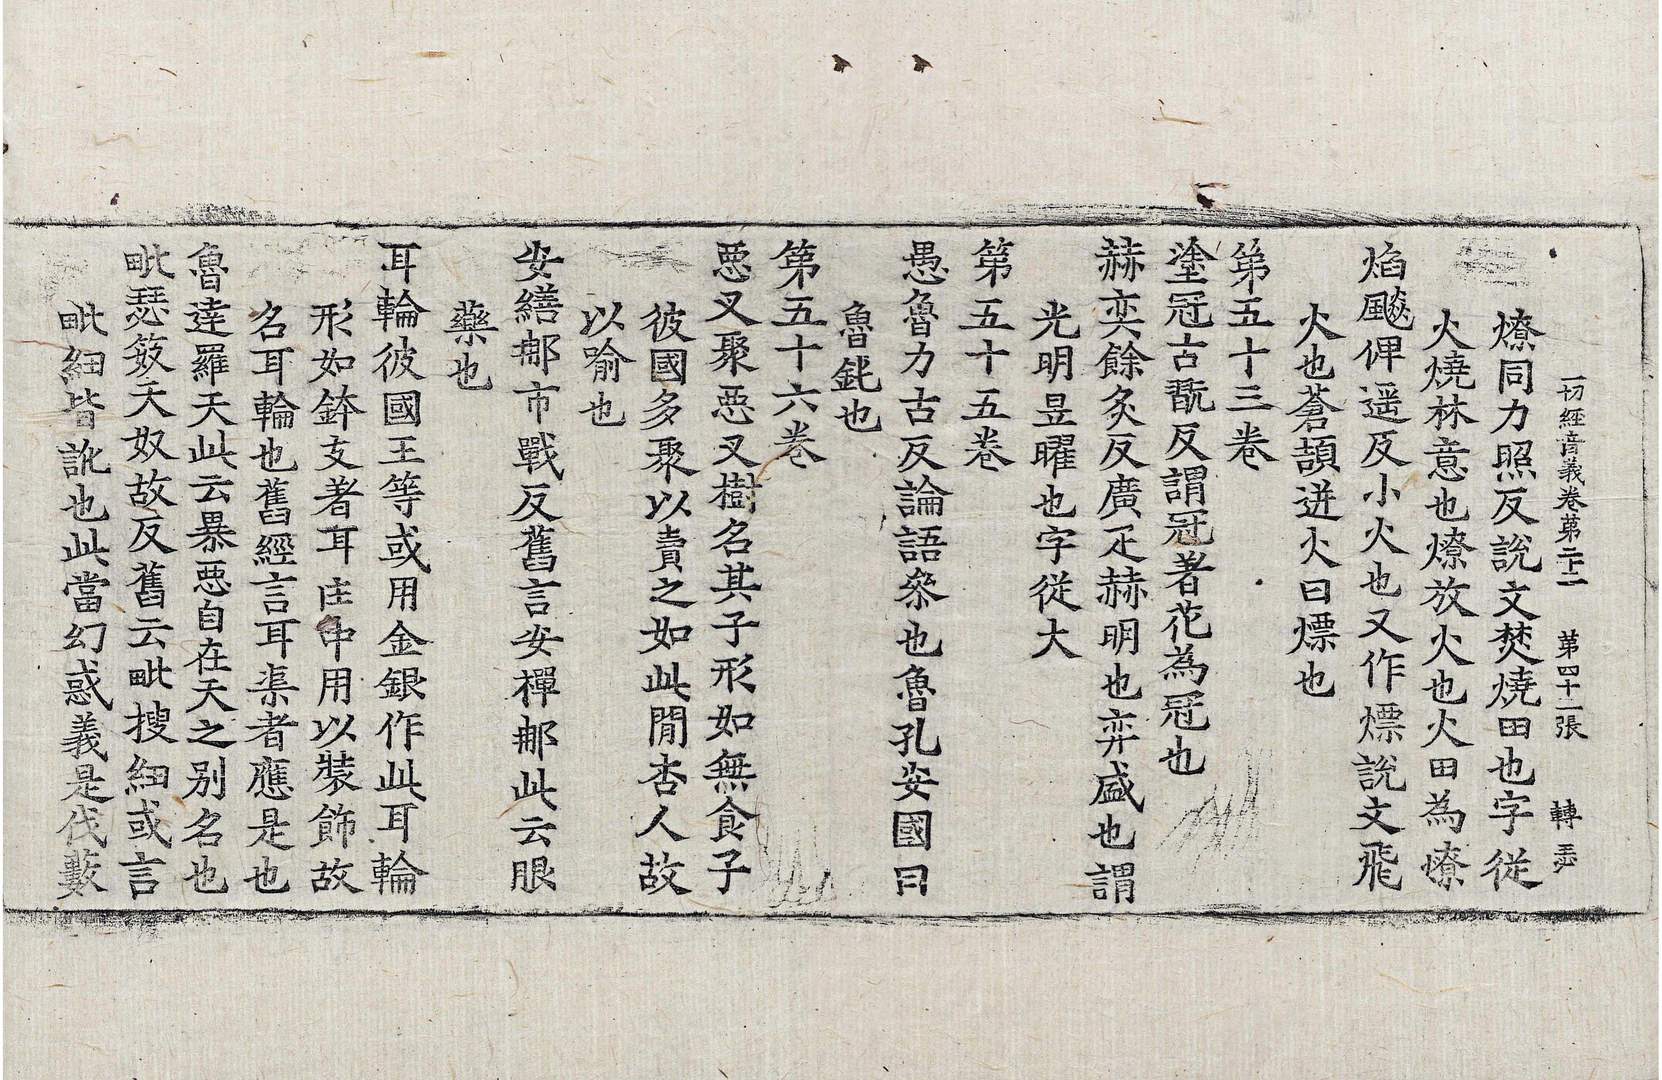 一切經音義卷第二十二　第四十二張　轉
燎同力照反說文焚燒田也字從
火燒林意也燎放火也火田為燎
焰飈俾遥反小火也又作熛說文飛
火也蒼頡迸火曰熛也
第五十三卷
塗冠古翫反謂冠著花為冠也
赫弈餘炙反廣疋赫明也弈盛也謂
光明昱曜也字從大
第五十五卷
愚魯力古反論語叅也魯孔安國曰
魯鈍也
第五十六卷
惡叉聚惡叉樹名其子形如無食子
彼國多聚以賣之如此閒杏人故
以喻也
安繕郍市戰反舊言安禪郍此云眼
藥也
耳輪彼國王等或用金銀作此耳輪
形如鉢支著耳𤴿中用以裝飾故
名耳輪也舊經言耳渠者應是也
魯達羅天此云暴惡自在天之别名也
毗瑟笯天奴故反舊云毗搜紐或言
毗紐皆訛也此當幻惑義是伐藪